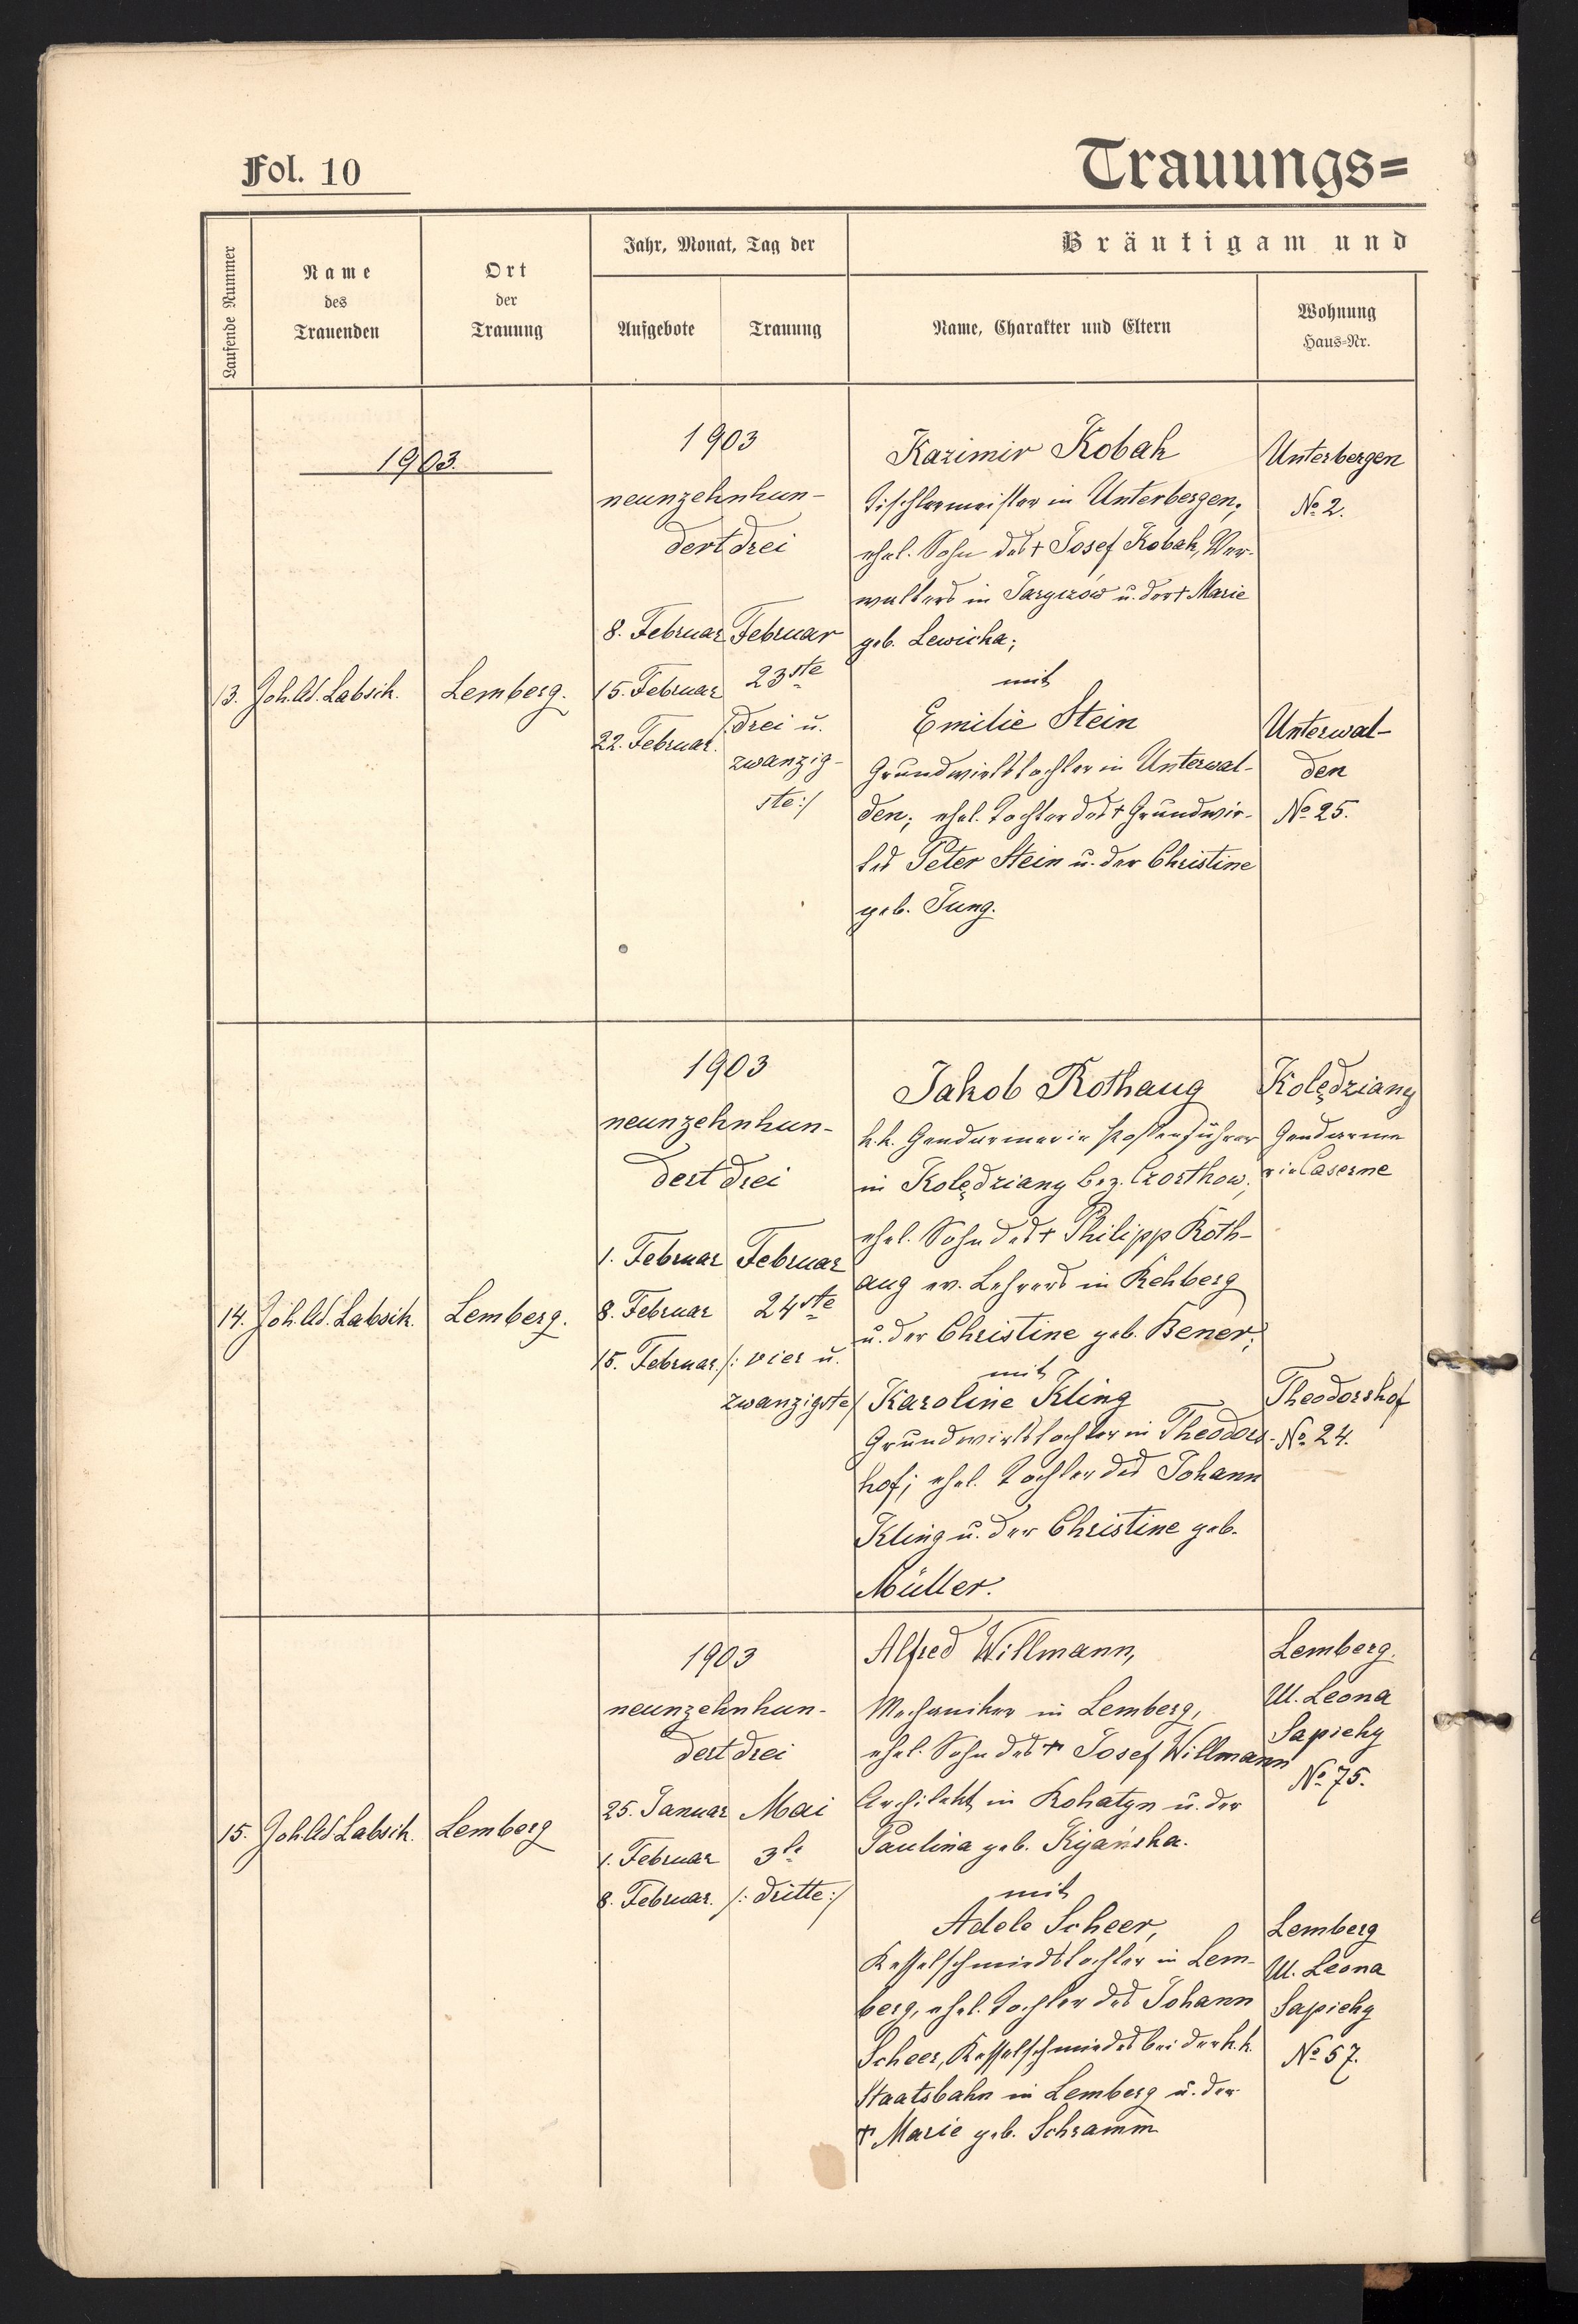 Fol. 10
Trauungs=
Laufende Nummer
Name
des
Trauenden
Ort
der
Trauung
Jahr, Monat, Tag der
Aufgebote
Trauung
Bräutigam und
Name, Charakter und Eltern
Wohnung
Haus-Nr.
1903.
13.
Joh. Ad. Labsik.
Lemberg.
1903
neunzehnhun-
dert drei
8. Februar
15. Februar
22. Februar.
Februar
23ste
/:drei u.
zwanzig-
ste:/
Kazimir Kobak
Tischlermeister in Unterbergen;
ehel. Sohn des † Josef Kobak, Ver-
walters in u. der † Marie
geb. Lewicka;
mit
Emilie Stein
Grundwirthstochter in Unterwal-
den; ehel. Tochter des † Grundwir-
tes Peter Stein u. der Christine
geb. Jung.
Unterbergen
No 2.
Unterwal-
den
No 25.
14.
Joh. Ad. Labsik.
Lemberg.
1903
neunzehnhun-
dert drei
1. Februar
8. Februar
15. Februar.
Februar
24ste
/: vier u.
zwanzigste/
Jakob Rothaug
k.k. Gendarmerie Postenführer
in Kolędziany bez. Czortkow;
ehel. Sohn des † Philipp Roth-
aug ev. Lehrers in Rehberg
u. der Christine geb. Bener;
mit
Karoline Kling
Grundwirthstochter in Theodors-
hof; ehel. Tochter des Johann
Kling u. der Christine geb.
Müller.
Kolędziany
Gendarme
rie Caserne
Theodorshof
No 24.
15.
Joh. Ad. Labsik.
Lemberg
1903
neunzehnhun-
dert drei
25. Januar
1. Februar
8. Februar.
Mai
3te
/: dritte:/
Alfred Willmann,
Mechaniker in Lemberg,
ehel. Sohn des † Josef Willmann
Architekt in Rohatyn u. der
Paulina geb. Kijańska.
mit
Adele Scheer,
Kesselschmiedstochter in Lem-
berg, ehel. Tochter des Johann
Scheer, Kesselschmiedes bei der k.k.
Staatsbahn in Lemberg u. der
† Marie geb. Schramm
Lemberg.
Ul. Leona
Sapiehy
No 75.
Lemberg
Ul. Leona
Sapiehy
No 57.